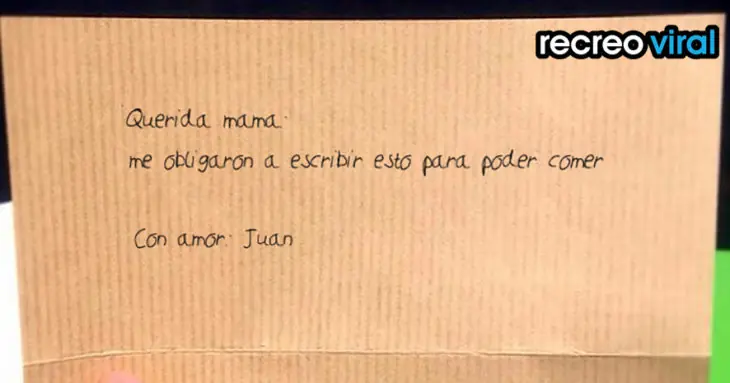 recreo viral
Querida mama:
me obligaron a escribir esto para poder comer
Con amor: Juan